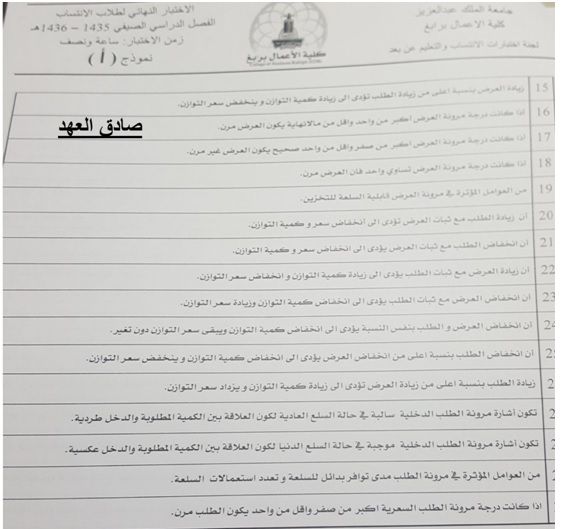 جامعة الملك عبدالعزيز
كلية الاعمال برابغ
لجنة اختبارات الانتساب والتعليم عن بعد
كلية الأعمال برابغ
الاختبار النهائي لطلاب الانتساب
الفصل الدراسي الصيفي 1435 – 1436هـ
زمن الاختبار: ساعة ونصف
نموذج (أ)
صادق العهد
15 زيادة العرض بنسبة اعلى من زيادة الطلب تؤدى الى زيادة كمية التوازن و ينخفض سعر التوازن.
16 اذا كانت درجة مرونة العرض اكبر من واحد واقل من مالانهاية يكون العرض مرن.
17 اذا كانت درجة مرونة العرض اكبر من صفر واقل من واحد صحيح يكون العرض غير مرن.
18 اذا كانت درجة مرونة العرض تساوي واحد فان العرض مرن.
19 من العوامل المؤثرة في مرونة العرض قابلية السلعة للتخزين.
20 أن زيادة الطلب مع ثبات العرض تؤدى الى انخفاض سعر و كمية التوازن.
21 أن انخفاض الطلب مع ثبات العرض يؤدى الى انخفاض سعر و كمية التوازن.
22 أن زيادة العرض مع ثبات الطلب يؤدى الى زيادة كمية التوازن و انخفاض سعر التوازن.
23 ان انخفاض العرض مع ثبات الطلب يؤدى الى انخفاض كمية التوازن وزيادة سعر التوازن.
24 أن انخفاض العرض و الطلب بنفس النسبة يؤدى الى انخفاض كمية التوازن ويبقى سعر التوازن دون تغير.
2 أن انخفاض الطلب بنسبة اعلى من انخفاض العرض يؤدى الى انخفاض كمية التوازن و ينخفض سعر التوازن.
2 زيادة الطلب بنسبة اعلى من زيادة العرض تؤدى الى زيادة كمية التوازن و يزداد سعر التوازن.
2 تكون أشارة مرونة الطلب الدخلية سالبة في حالة السلع العادية لكون العلاقة بين الكمية المطلوبة والدخل طردية.
2 تكون أشارة مرونة الطلب الدخلية موجبة في حالة السلع الدنيا لكون العلاقة بين الكمية المطلوبة والدخل عكسية.
2 من العوامل المؤثرة في مرونة الطلب مدى توافر بدائل للسلعة و تعدد استعمالات السلعة.
اذا كانت درجة مرونة الطلب السعرية اكبر من صفر واقل من واحد يكون الطلب مرن.